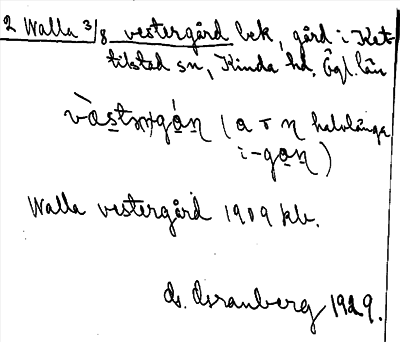 2 Walla 3/8 vestergård bek, gård i Ket-
tilstad sn, Kinda hd. Ögl. län
(a o n halvlånga
i -
Walla vestergård 1909 kb.
ds. Strandberg 1929.